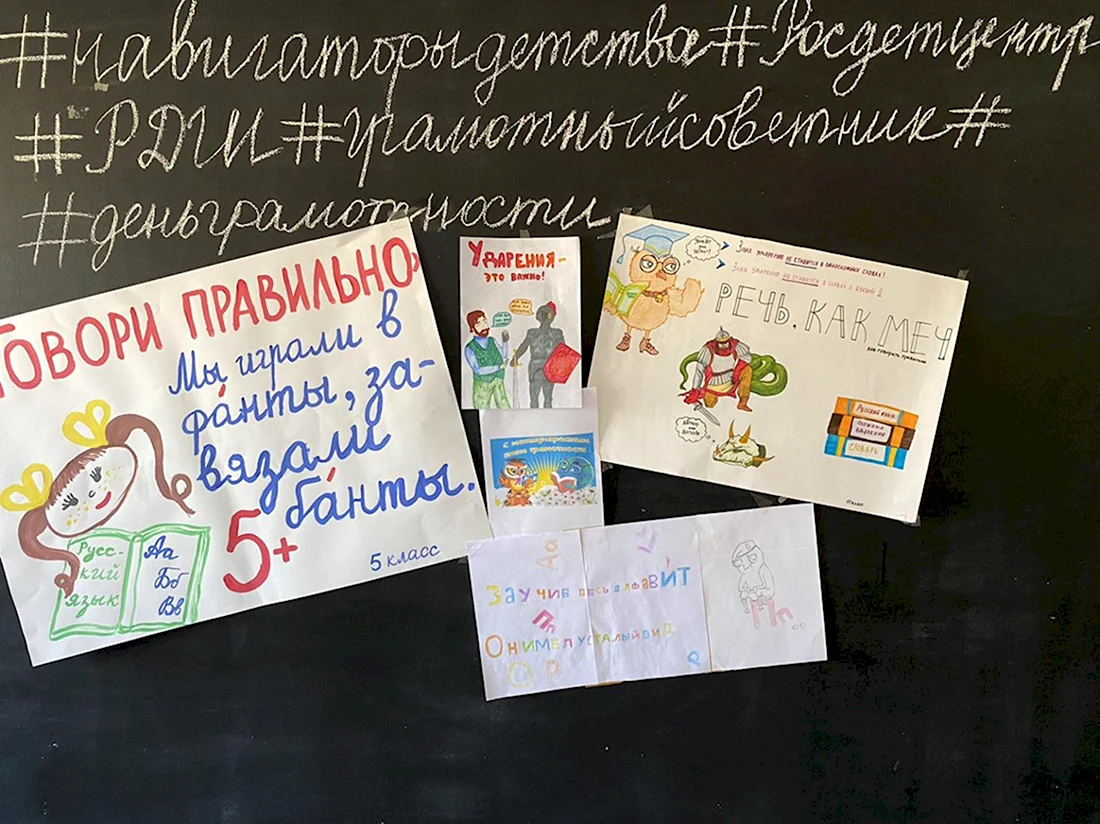 #навигаторыдетства#Росдетцентр
#РДШ#грамотныйсоветник#
#деньграмотности
ГОВОРИ ПРАВИЛЬНО
Мы играли в
фа́нты, за-
вязали
ба́нты.
5+
5 класс
Русс-
кий
язык
Аа
Бб
Вв
УДАРЕНИЯ-
ЭТО ВАЖНО!
С международным
днем грамотности
Знак ударения не ставится в односложных словах!
Знак ударения не ставится в словах с буквой Ё
РЕЧЬ, КАК МЕЧ
как говорить правильно
Русский язык
СЛОВАРЬ
Заучив весь алфаВИ́Т
Пп
ОН ИМЕЛ УСТАЛЫЙ ВИД
О Р
Р
Пп